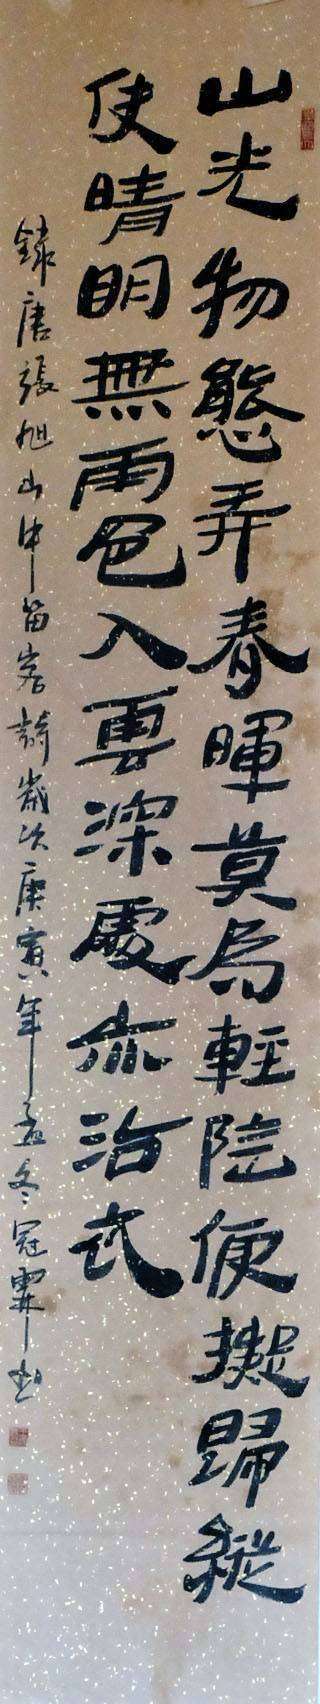 山光物態弄春暉莫為輕陰便擬歸縱
使晴明無雨色入雲深處亦沾衣
錄唐張旭山中留客詩歲次庚寅年孟冬冠书